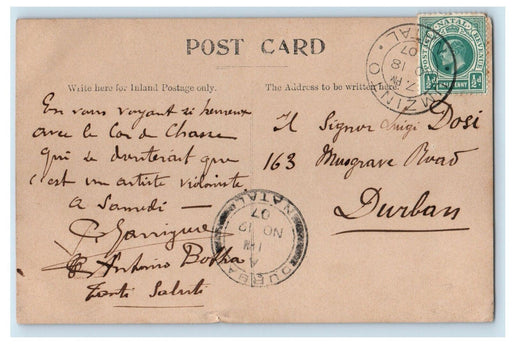 POST CARD
Write here for Inland Postage only.
The Address to be written here.
POSTAGE NATAL REVENUE
½d
½d
HALFPENNY
UMZINTO
NATAL
7. PM
NO 18
07
En vous voyant si heureux
avec le Cor de Chasse
qui se douterait que
c'est un artiste violoniste
A Samedi —
Antonio Botha
Tanti Saluti
Il Signor Luigi Dosi
163 Musgrave Road
Durban
DURBAN
NATAL
1 PM
NO 19
07